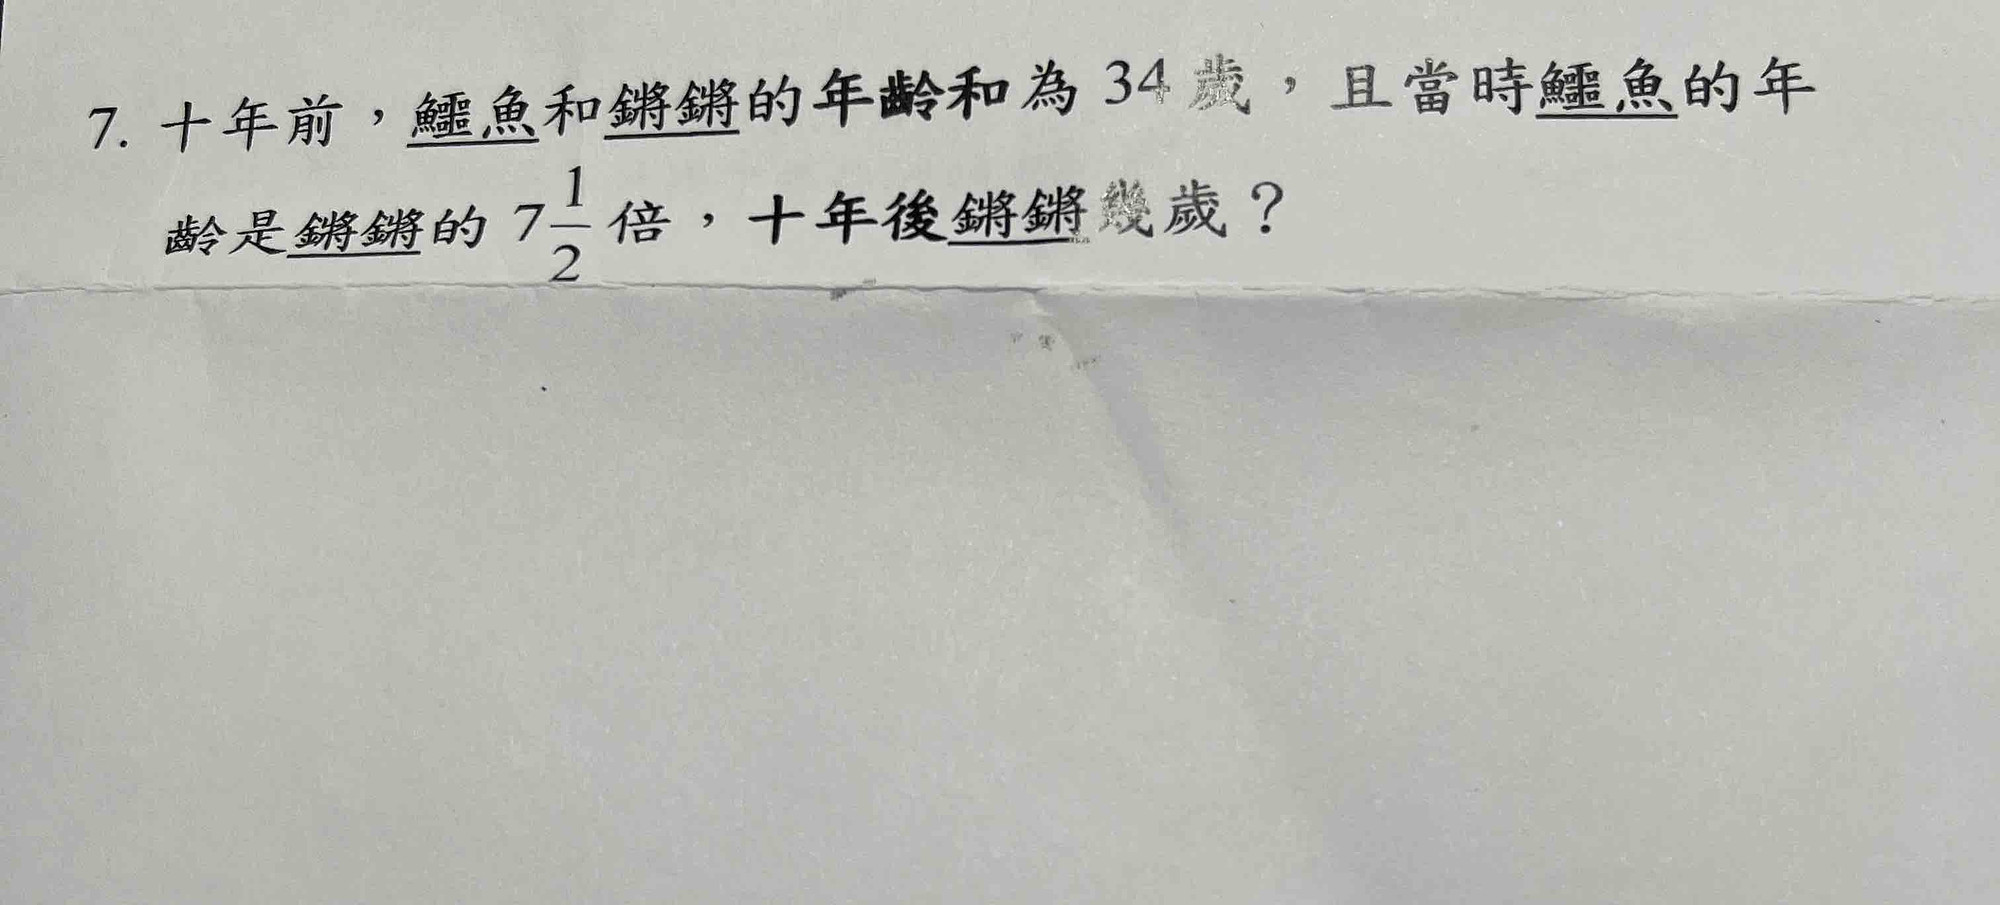 7. 十年前，鱷魚和鏘鏘的年齡和為 34 歲，且當時鱷魚的年
齡是鏘鏘的 7 1/2 倍，十年後鏘鏘幾歲？